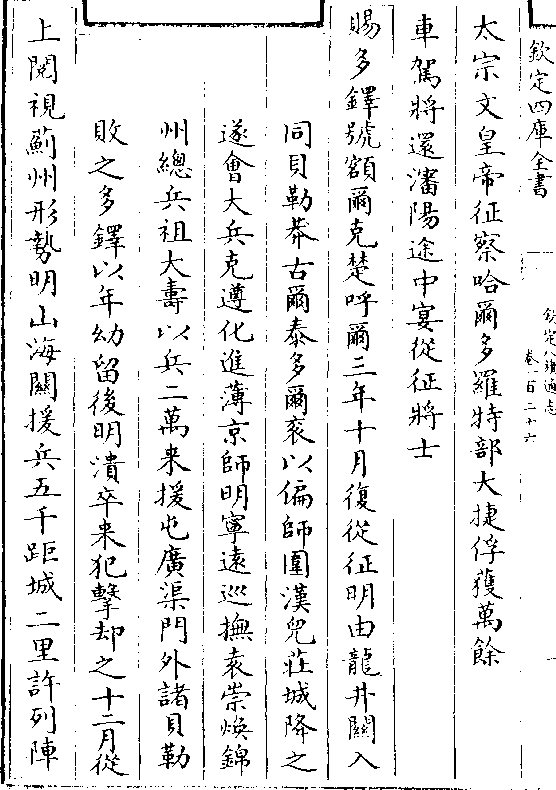 欽定四庫全書
欽定八旗通志
卷一百三十六
太宗文皇帝征察哈爾多羅特部大捷俘獲萬餘
車駕將還瀋陽途中宴從征將士
賜多鐸號額爾克楚呼爾三年十月復從征明由龍井關入
同貝勒莽古爾泰多爾衮以偏師圍漢兒莊城降之
遂會大兵克遵化進薄京師明寧遠巡撫袁崇煥錦
州總兵祖大壽以兵二萬来援屯廣渠門外諸貝勒
敗之多鐸以年幼留後明潰卒来犯擊却之十二月從
上閱視薊州形勢明山海關援兵五千距城二里許列陣